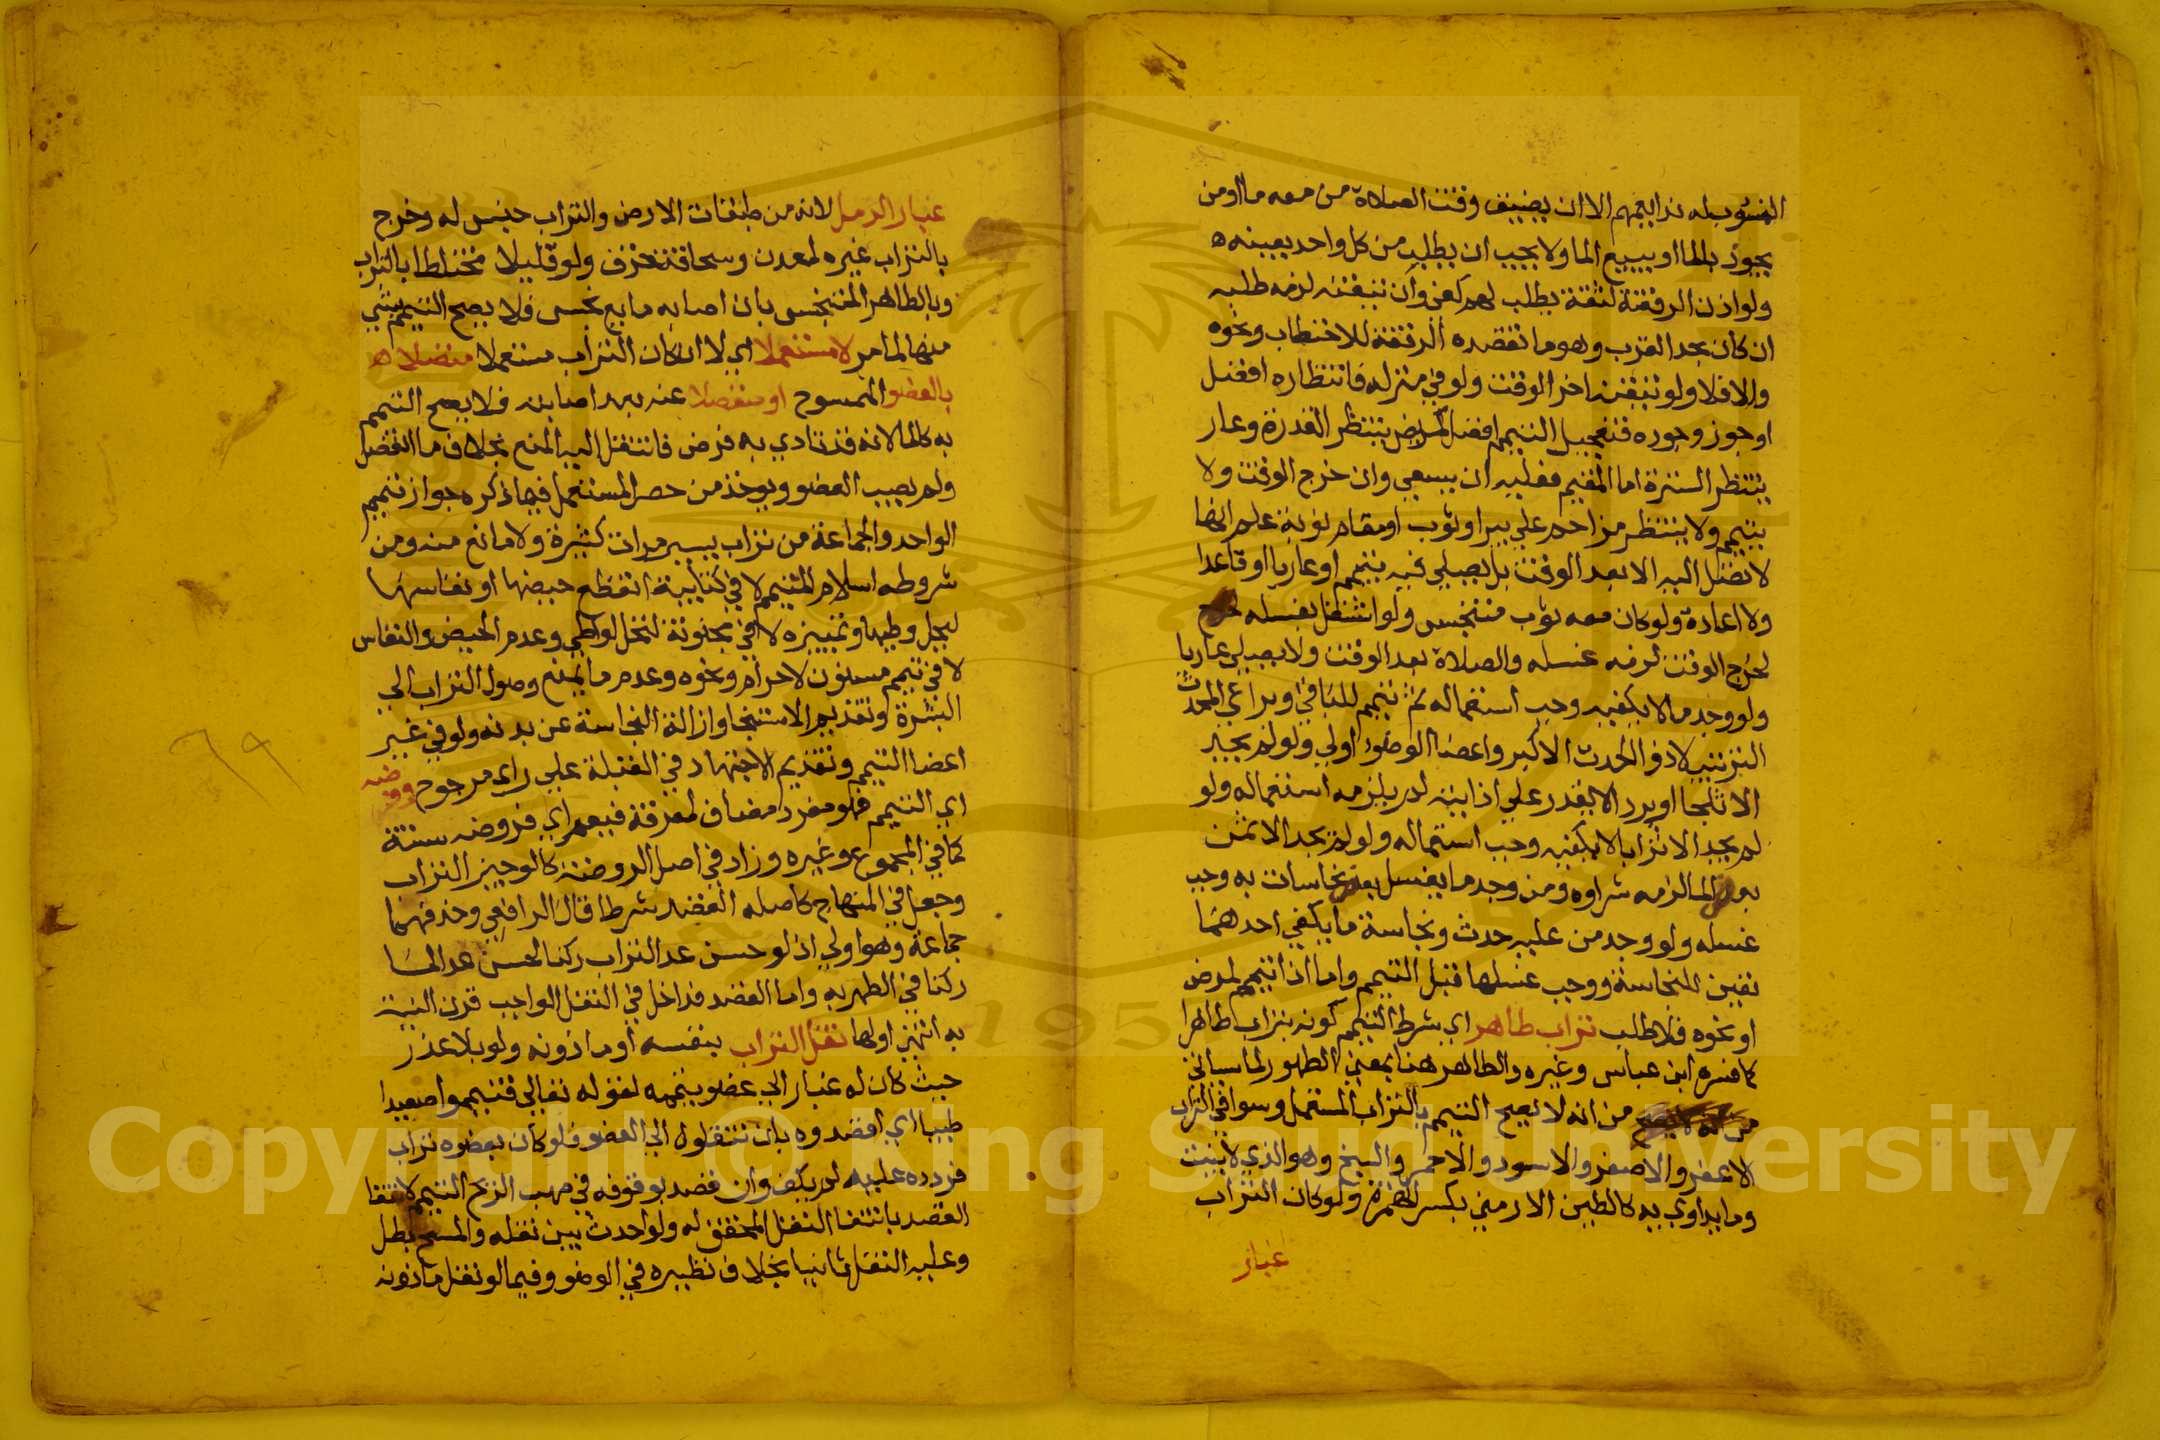 المنسوب له نداً يعمهم الا ان يضيق وقت الصلاة من معه ما او من
يجود بالما او يبيع الما ولا يجب ان يطلب من كل واحد بعينه ه
ولو اذن الرفقة لثقة يطلب لهم كفى وان تيقنه لزمه طلبه
ان كان بحد القرب وهو ما تقصده الرفقة للاحتطاب ونحوه
والا فلا ولو تيقنه اخر الوقت ولو في منزله فانتظاره افضل
او جوز وجوده فتعجيل التيمم افضل كمريض ينتظر القدرة وعار
ينتظر السترة اما المقيم فعليه ان يسعى وان خرج الوقت ولا
يتيمم ولا ينتظر مزاحم علي بير او ثوب او مقام نوبة علم انها
لا تصل اليه الا بعد الوقت بل يصلي فيه بتيمم او عاريا او قاعدا
ولا اعادة ولو كان معه ثوب متنجس ولو اشتغل بغسله خرج
لخرج الوقت لزمه غسله والصلاة بعد الوقت ولا يصلي عاريا
ولو وجد ما لا يكفيه وجب استعماله ثم تيمم للباقي ويراعي المحدث
الترتيب لا ذو الحدث الاكبر واعضا الوضو اولي ولو لم يجد
الا ثلجا او بردا لا يقدر علي اذابته لم يلزمه استعماله ولو
لم يجد الا ترابا لا يكفيه وجب استعماله ولو لم يجد الا ثمن
بعض الما لزمه شراوه ومن وجد ما يغسل بعض نجاسات به وجب
غسله ولو وجد من عليه حدث ونجاسة ما يكفي احدهما
تعين للنجاسة ووجب غسلها قبل التيمم واما اذا تيمم لمرض
او نحوه فلا طلب تراب طاهر اي بشرط التيمم كونه بتراب طاهرا
كما فسره ابن عباس وغيره والطاهر هنا بمعني الطهور لما سياتي
من انه لا يصح التيمم بالتراب المستعمل وسوا في التراب
الاعفر والاصفر والاسود والاحمر والسبخ وهو الذي لا ينبت
وما يداوي به كالطين الارمني بكسر الهمزة ولو كان التراب
غبار
غبار الرمل لانه من طبقات الارض والتراب جنس له وخرج
بالتراب غيره كمعدن وسحاقة خزف ولو قليلا مختلطا بالتراب
وبالطاهر المتنجس بان اصابه مايع نجس فلا يصح التيمم بشي
منها لما مر لا مستعملا اي لا ان كان التراب مستعملا متصلا ه
بالعضو الممسوح او منفصلا عنه بعد اصابته فلا يصح التيمم
به كالما لانه قد تادي به فرض فانتقل اليه المنع بخلاف ما انفصل
ولم يصب العضو ويوخذ من حصر المستعمل فيما ذكره جواز تيمم
الواحد والجماعة من تراب يسير مرات كثيرة ولا مانع منه ومن
شروطه اسلام المتيمم لا في كتابية انقطع حيضها او نفاسها
ليحل وطيها وتمييزه لا في مجنونة لتحل لواطي وعدم الحيض والنفاس
لا في تيمم مسنون لاحرام ونحوه وعدم ما يمنع وصول التراب الي
البشرة وتقديم الاستنجا وازالة النجاسة عن بدنه ولو في غير
اعضا التيمم وتقديم الاجتهاد في القبلة علي راي مرجوح وفرضه
اي التيمم فهو مفرد مضاف لمعرفة فيعم اي فروضه ستة
كما في المجموع وغيره وزاد في اصل الروضة كالوجيز التراب
وجعل في المنهاج كاصله القصد شرطا قال الرافعي وحذفهما
جماعة وهو اولي اذ لو حسن عد التراب ركنا لحسن عد الما
ركنا في الطهر به واما القصد فداخل في النقل الواجب قرن النية
به انتهي اولها نقل التراب بنفسه او ماذونه ولو بلا عذر
حيث كان له غبار الي عضو يتيممه لقوله تعالي فتيمموا صعيدا
طيبا اي اقصدوه بان تنقلوه الي العضو فلو كان بعضوه تراب
فردده عليه لم يكف وان قصد بوقوفه في مهب الريح التيمم لانتفا
القصد بانتفا النقل المحقق له ولو احدث بين نقله والمسح بطل
وعليه النقل ثانيا بخلاف نظيره في الوضو وفيما لو نقل ماذونه
٦٩
Copyright © King Saud University
1957